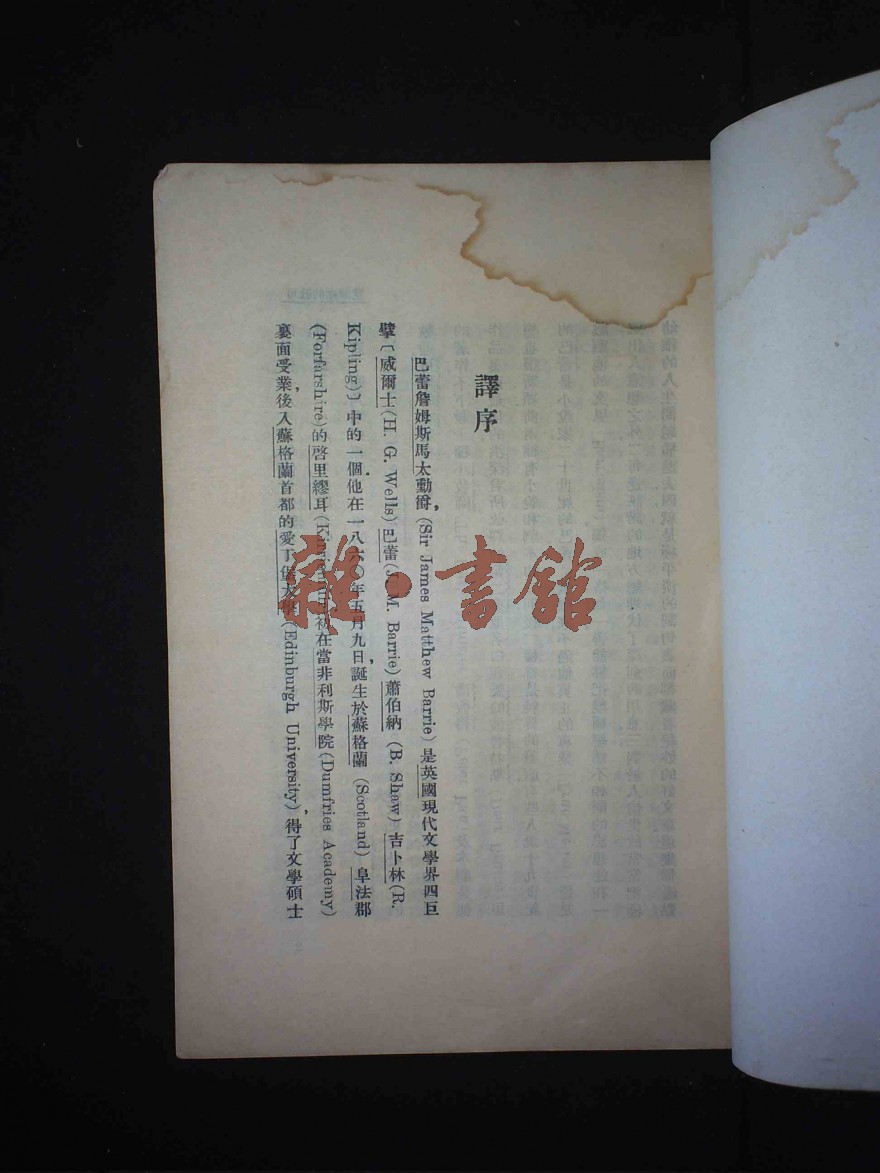 譯序
巴蕾詹姆斯馬太勳爵,(Sir James Matthew Barrie)是英國現代文學界四巨
擘〔威爾士(H. G. Wells)巴蕾(J. M. Barrie)蕭伯納(B. Shaw)吉卜林(R.
Kipling)〕中的一個.他在一八六〇年五月九日,誕生於蘇格蘭(Scotland)阜法郡
(Forfarshire)的啓里繆耳 初在當非利斯學院(Dumfries Academy)
裏面受業,後入蘇格蘭首都的愛丁堡大學(Edinburgh University),得了文學碩士
雜·書館